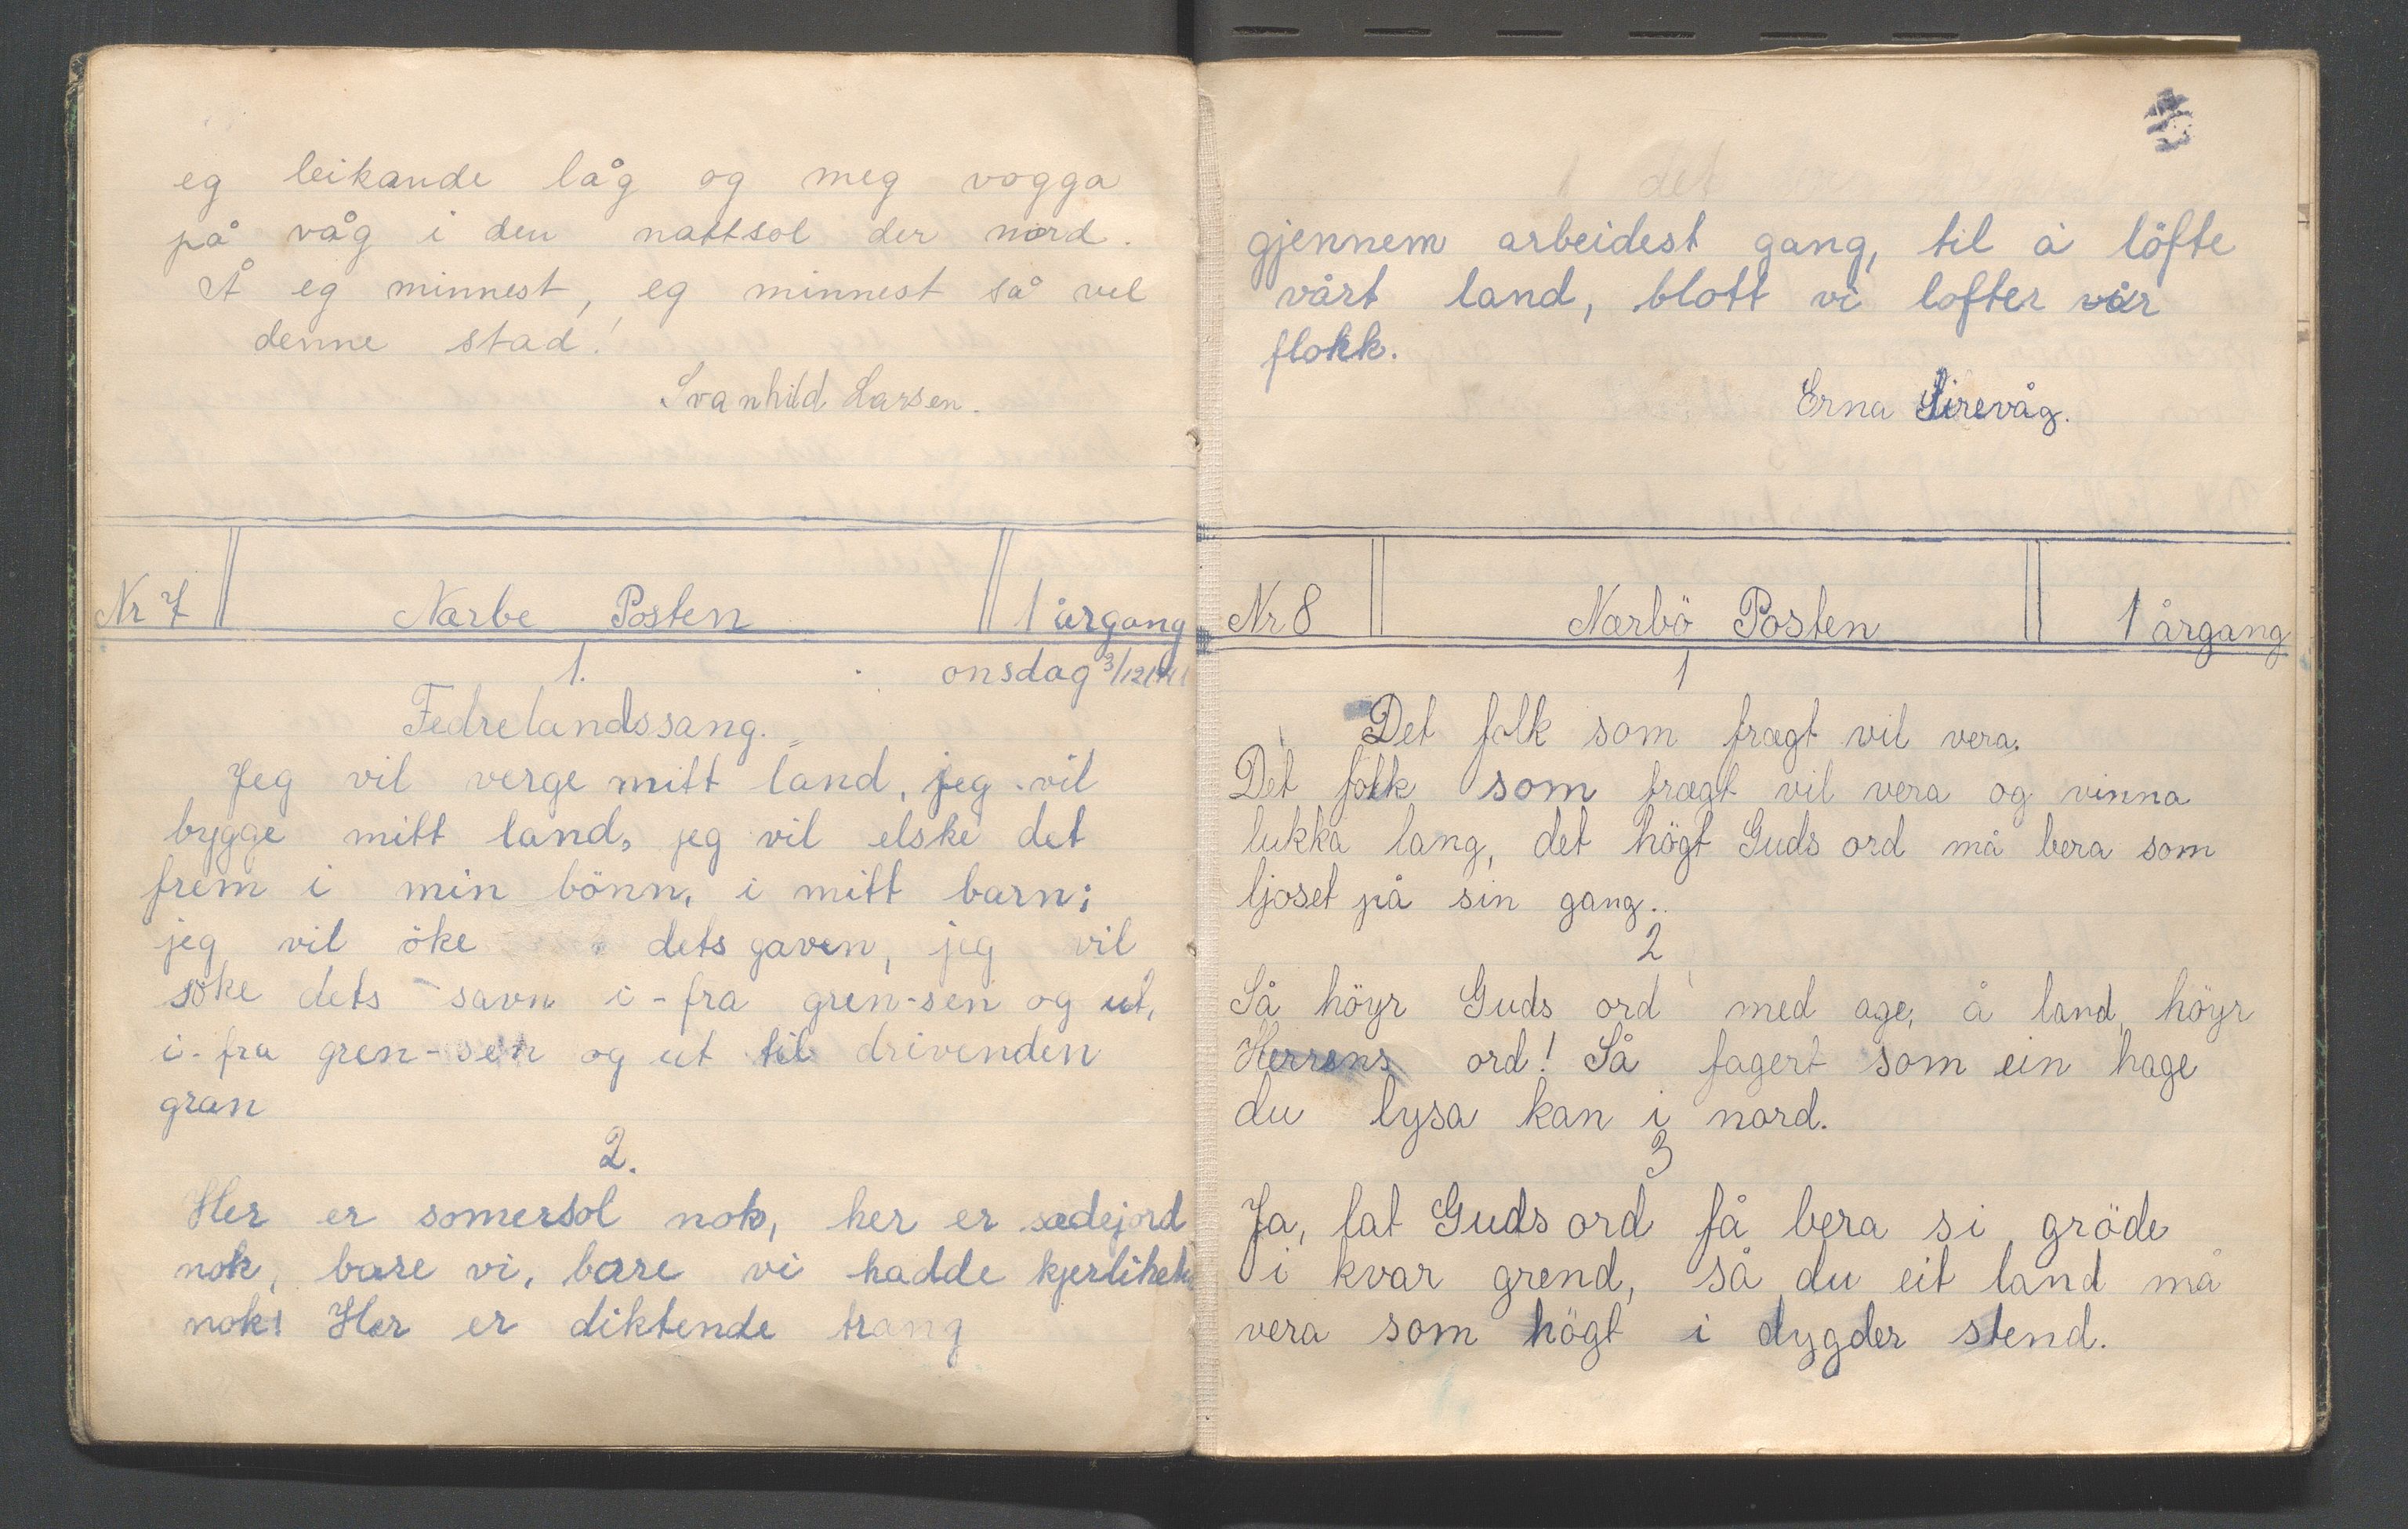 eg leikande låg og meg vogga
på våg i den nattsol der nord.
Å eg minnest, eg minnest så vel
denne stad!
Svanhild Larsen.
Nr 7 Nærbø Posten 1 årgang
1. onsdag 3/12/41
Fedrelandssang.
Jeg vil verge mitt land, jeg vil
bygge mitt land, jeg vil elske det
frem i min bönn, i mitt barn;
jeg vil öke dets gaven, jeg vil
söke dets savn i-fra gren-sen og ut,
i-fra gren-sen og ut til drivenden
gran
2.
Her er somersol nok, her er sædejord
nok, bare vi, bare vi hadde kjerlihet
nok! Her er diktende trang
gjennem arbeidest gang, til å löfte
vårt land, blott vi lofter vår
flokk.
Erna Sirevåg.
Nr 8 Nærbö Posten 1 årgang
1
Det folk som frægt vil vera.
Det folk som frægt vil vera og vinna
lukka lang, det högt Guds ord må bera som
ljoset på sin gang.
2
Så höyr Guds ord med age, å land, höyr
Herrens ord! Så fagert som ein hage
du lysa kan i nord.
3
Ja, lat Guds ord få bera si gröde
i kvar grend, så du eit land må
vera som högt i dygder stend.